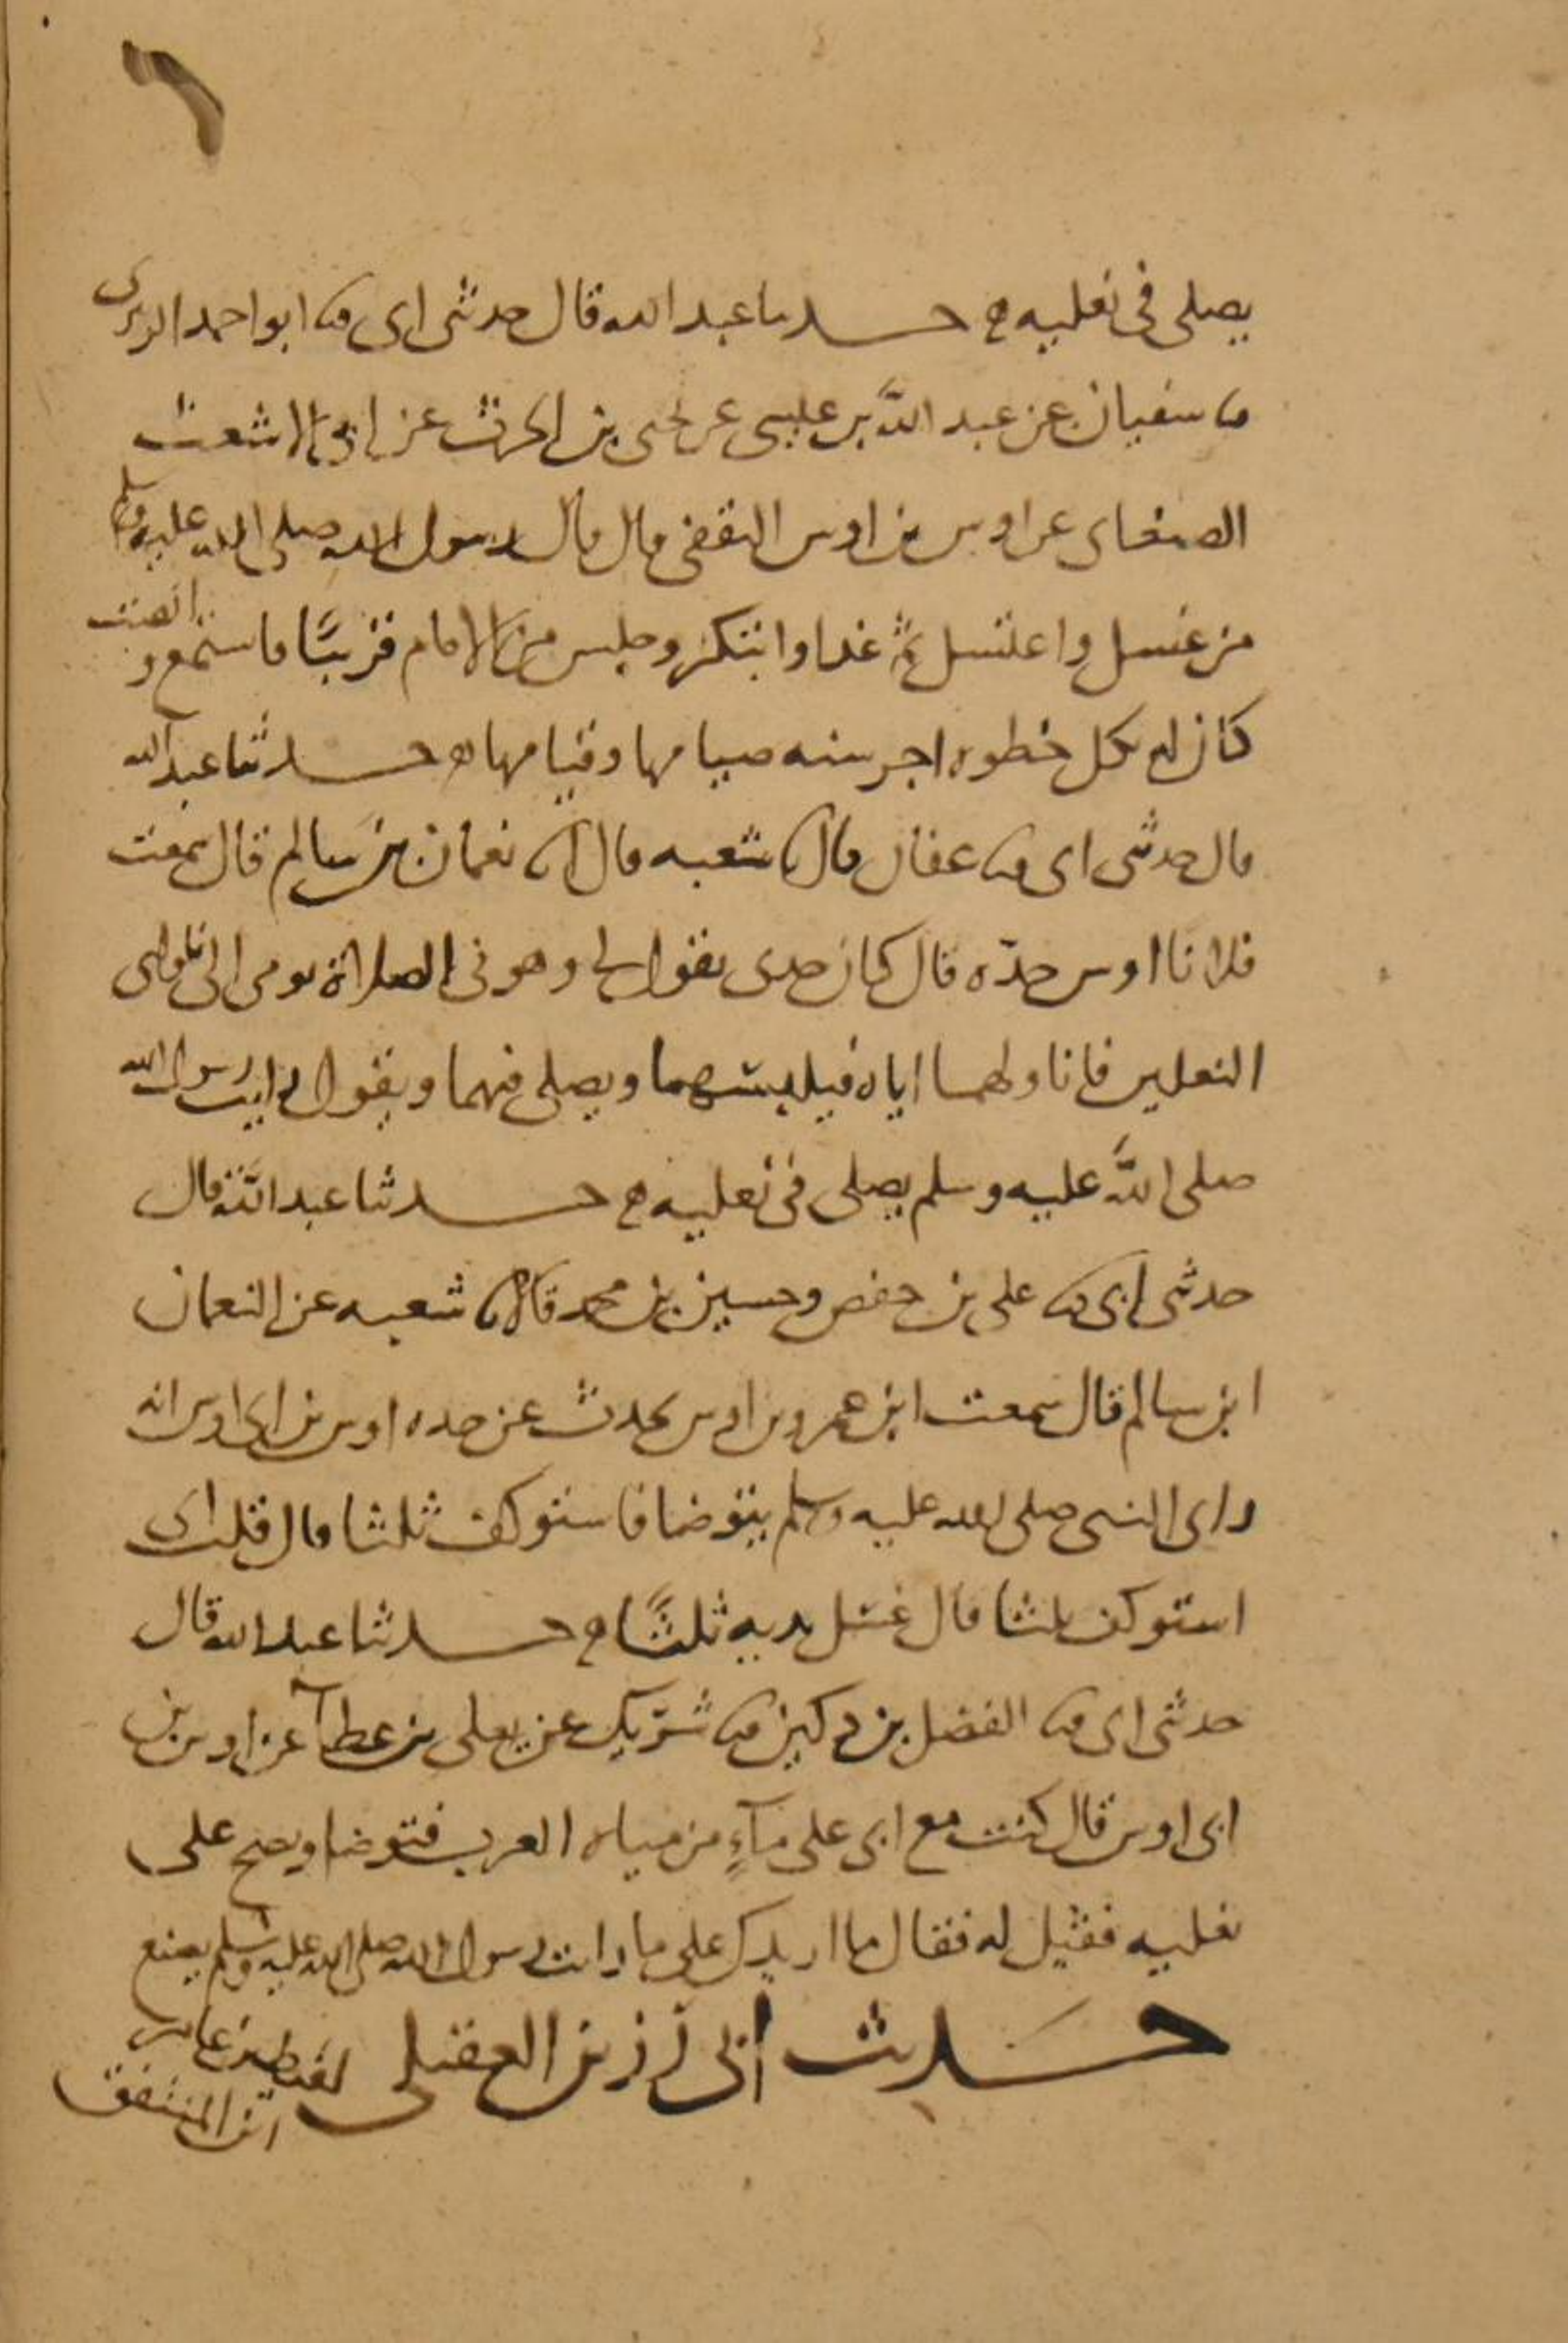 ٦
يصلى فى نعليه ه حدثنا عبد الله قال حدثنى ابى ثنا ابو احمد الزبيرى
ثنا سفيان عن عبد الله بن عيسى عن يحيى بن الحرث عن ابى الاشعث
الصنعانى عن اوس بن اوس الثقفى قال قال رسول الله صلى الله عليه وسلم
من غسل واغتسل ثم غدا وابتكر وجلس من الامام قريبًا فاستمع وانصت
كان له بكل خطوه اجر سنه صيامها وقيامها ه حدثنا عبد الله
قال حدثنى ابى ثنا عفان قال ثنا شعبه قال انا نعمان بن سالم قال سمعت
فلانا اوس جدّه قال كان جدى يقول لى وهو فى الصلاة يومى الى ناولنى
النعلين فاناولهما اياه فيلبسهما ويصلى فيهما ويقول رايت رسول الله
صلى الله عليه وسلم يصلى فى نعليه ه حدثنا عبد الله قال
حدثنى ابى ثنا على بن حفص وحسين بن محمد قالا ثنا شعبه عن النعمان
ابن سالم قال سمعت ابن عمرو بن اوس يحدث عن جده اوس بن ابى اوس انه
راى النبى صلى الله عليه وسلم يتوضا فاستوكف ثلثا قال قلت اى
استوكف ثلثا قال غسل يديه ثلثًا ه حدثنا عبد الله قال
حدثنى ابى ثنا الفضل بن دكين ثنا شريك عن يعلى بن عطآ عن اوس بن
ابى اوس قال كنت مع ابى على مآءٍ من مياه العرب فتوضا ومسح على
نعليه فقيل له فقال ما ازيدك على ما رايت رسول الله صلى الله عليه وسلم يصنع
حديث ابى رزين العقيلى لقيط بن عامر
ابن المنتفق